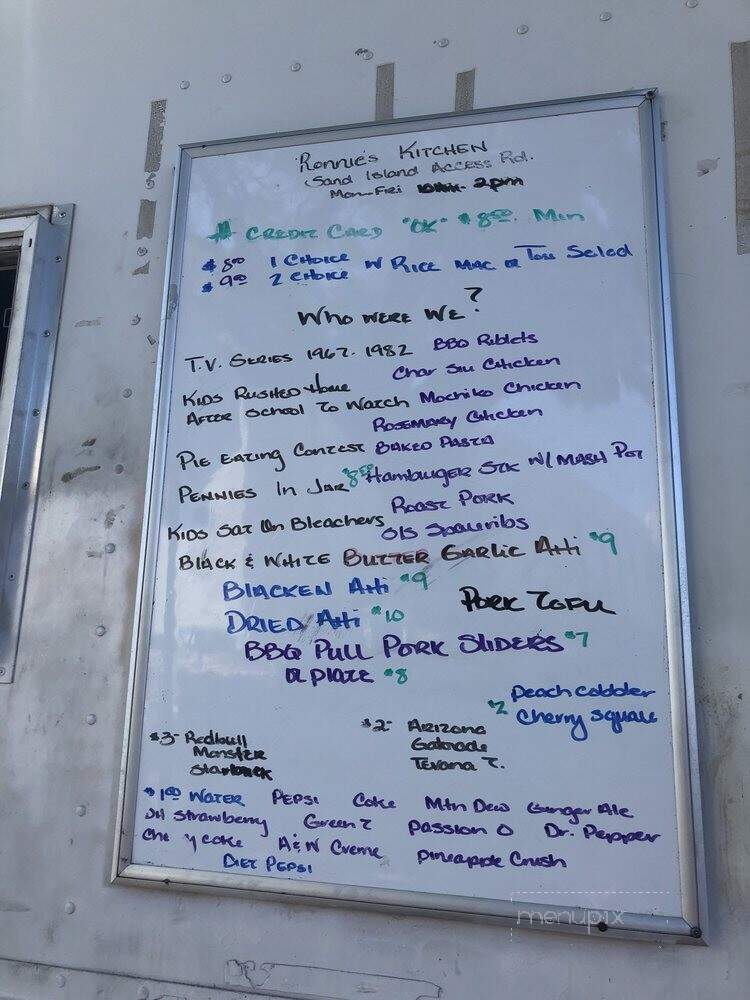 Ronnie's Kitchen
Sand Island Access Rd.
Mon-Fri 2pm
# Credit Card "OK" $8.50 Min
$8.00 1 Choice
$9.00 2 Choice w Rice Mac or Toss Salad
Who were we?
T.V. Series 1967-1982 BBQ Riblets
Char Siu Chicken
Kids Rushed Home
After School To Watch Mochiko Chicken
Rosemary Chicken
Pie Eating Contest Baked Pasta
Pennies In Jar Hamburger Stk w/ Mash Pot
Roast Pork
Kids Sat On Bleachers
Spareribs
Black & White Butter Garlic Ahi $9
Blacken Ahi $9
Dried Ahi $10
Pork Tofu
BBQ Pull Pork Sliders $7
or plate $8
Peach Cobbler
$2 Cherry Square
$3- Redbull
Monster
Starbuck
$2- Arizona
Gatorade
Tevana T.
$1.00 Water Pepsi Coke Mtn Dew Ginger Ale
Strawberry Green T Passion O Dr. Pepper
Che y Coke A&W Creme Pineapple Crush
Diet Pepsi
menupix